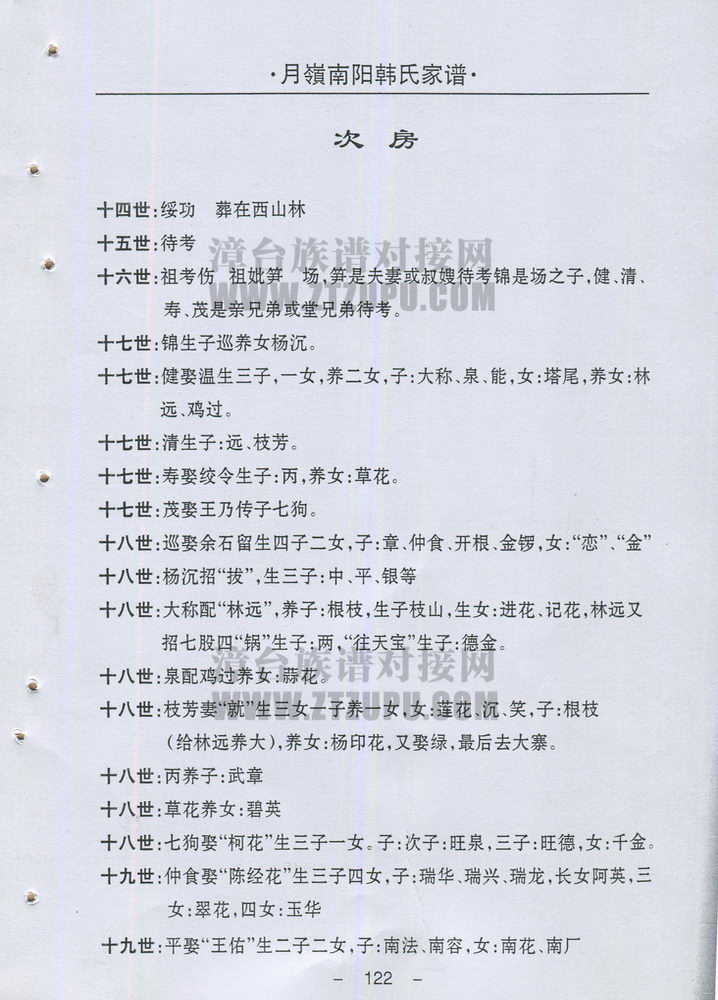 ·月嶺南阳韩氏家谱·
次 房
十四世:绥功 葬在西山林
十五世:待考
漳台族谱对接网
WWW.ZTZUPU.COM
十六世:祖考伤 祖妣笋 场,笋是夫妻或叔嫂待考锦是场之子,健、清、
寿、茂是亲兄弟或堂兄弟待考。
十七世:锦生子巡养女杨沉。
十七世:健娶温生三子,一女,养二女,子:大称、泉、能,女:塔尾,养女:林
远、鸡过。
十七世:清生子:远、枝芳。
十七世:寿娶绞令生子:丙,养女:草花。
十七世:茂娶王乃传子七狗。
十八世:巡娶余石留生四子二女,子:章、仲食、开根、金锣,女:“恋”、“金”
十八世:杨沉招“拔”,生三子:中、平、银等
十八世:大称配“林远”,养子:根枝,生子枝山,生女:进花、记花,林远又
招七股四“锅”生子:两,“往天宝”生子:德金。
漳台族谱对接网
WWW.ZTZUPU.COM
十八世:泉配鸡过养女:蒜花。
十八世:枝芳妻“就”生三女一子养一女,女:莲花、沉、笑,子:根枝
(给林远养大),养女:杨印花,又娶绿,最后去大寨。
十八世:丙养子:武章
十八世:草花养女:碧英
十八世:七狗娶“柯花”生三子一女。子:次子:旺泉,三子:旺德,女:千金。
十九世:仲食娶“陈经花”生三子四女,子:瑞华、瑞兴、瑞龙,长女阿英,三
女:翠花,四女:玉华
十九世:平娶“王佑”生二子二女,子:南法、南容,女:南花、南厂
- 122 -